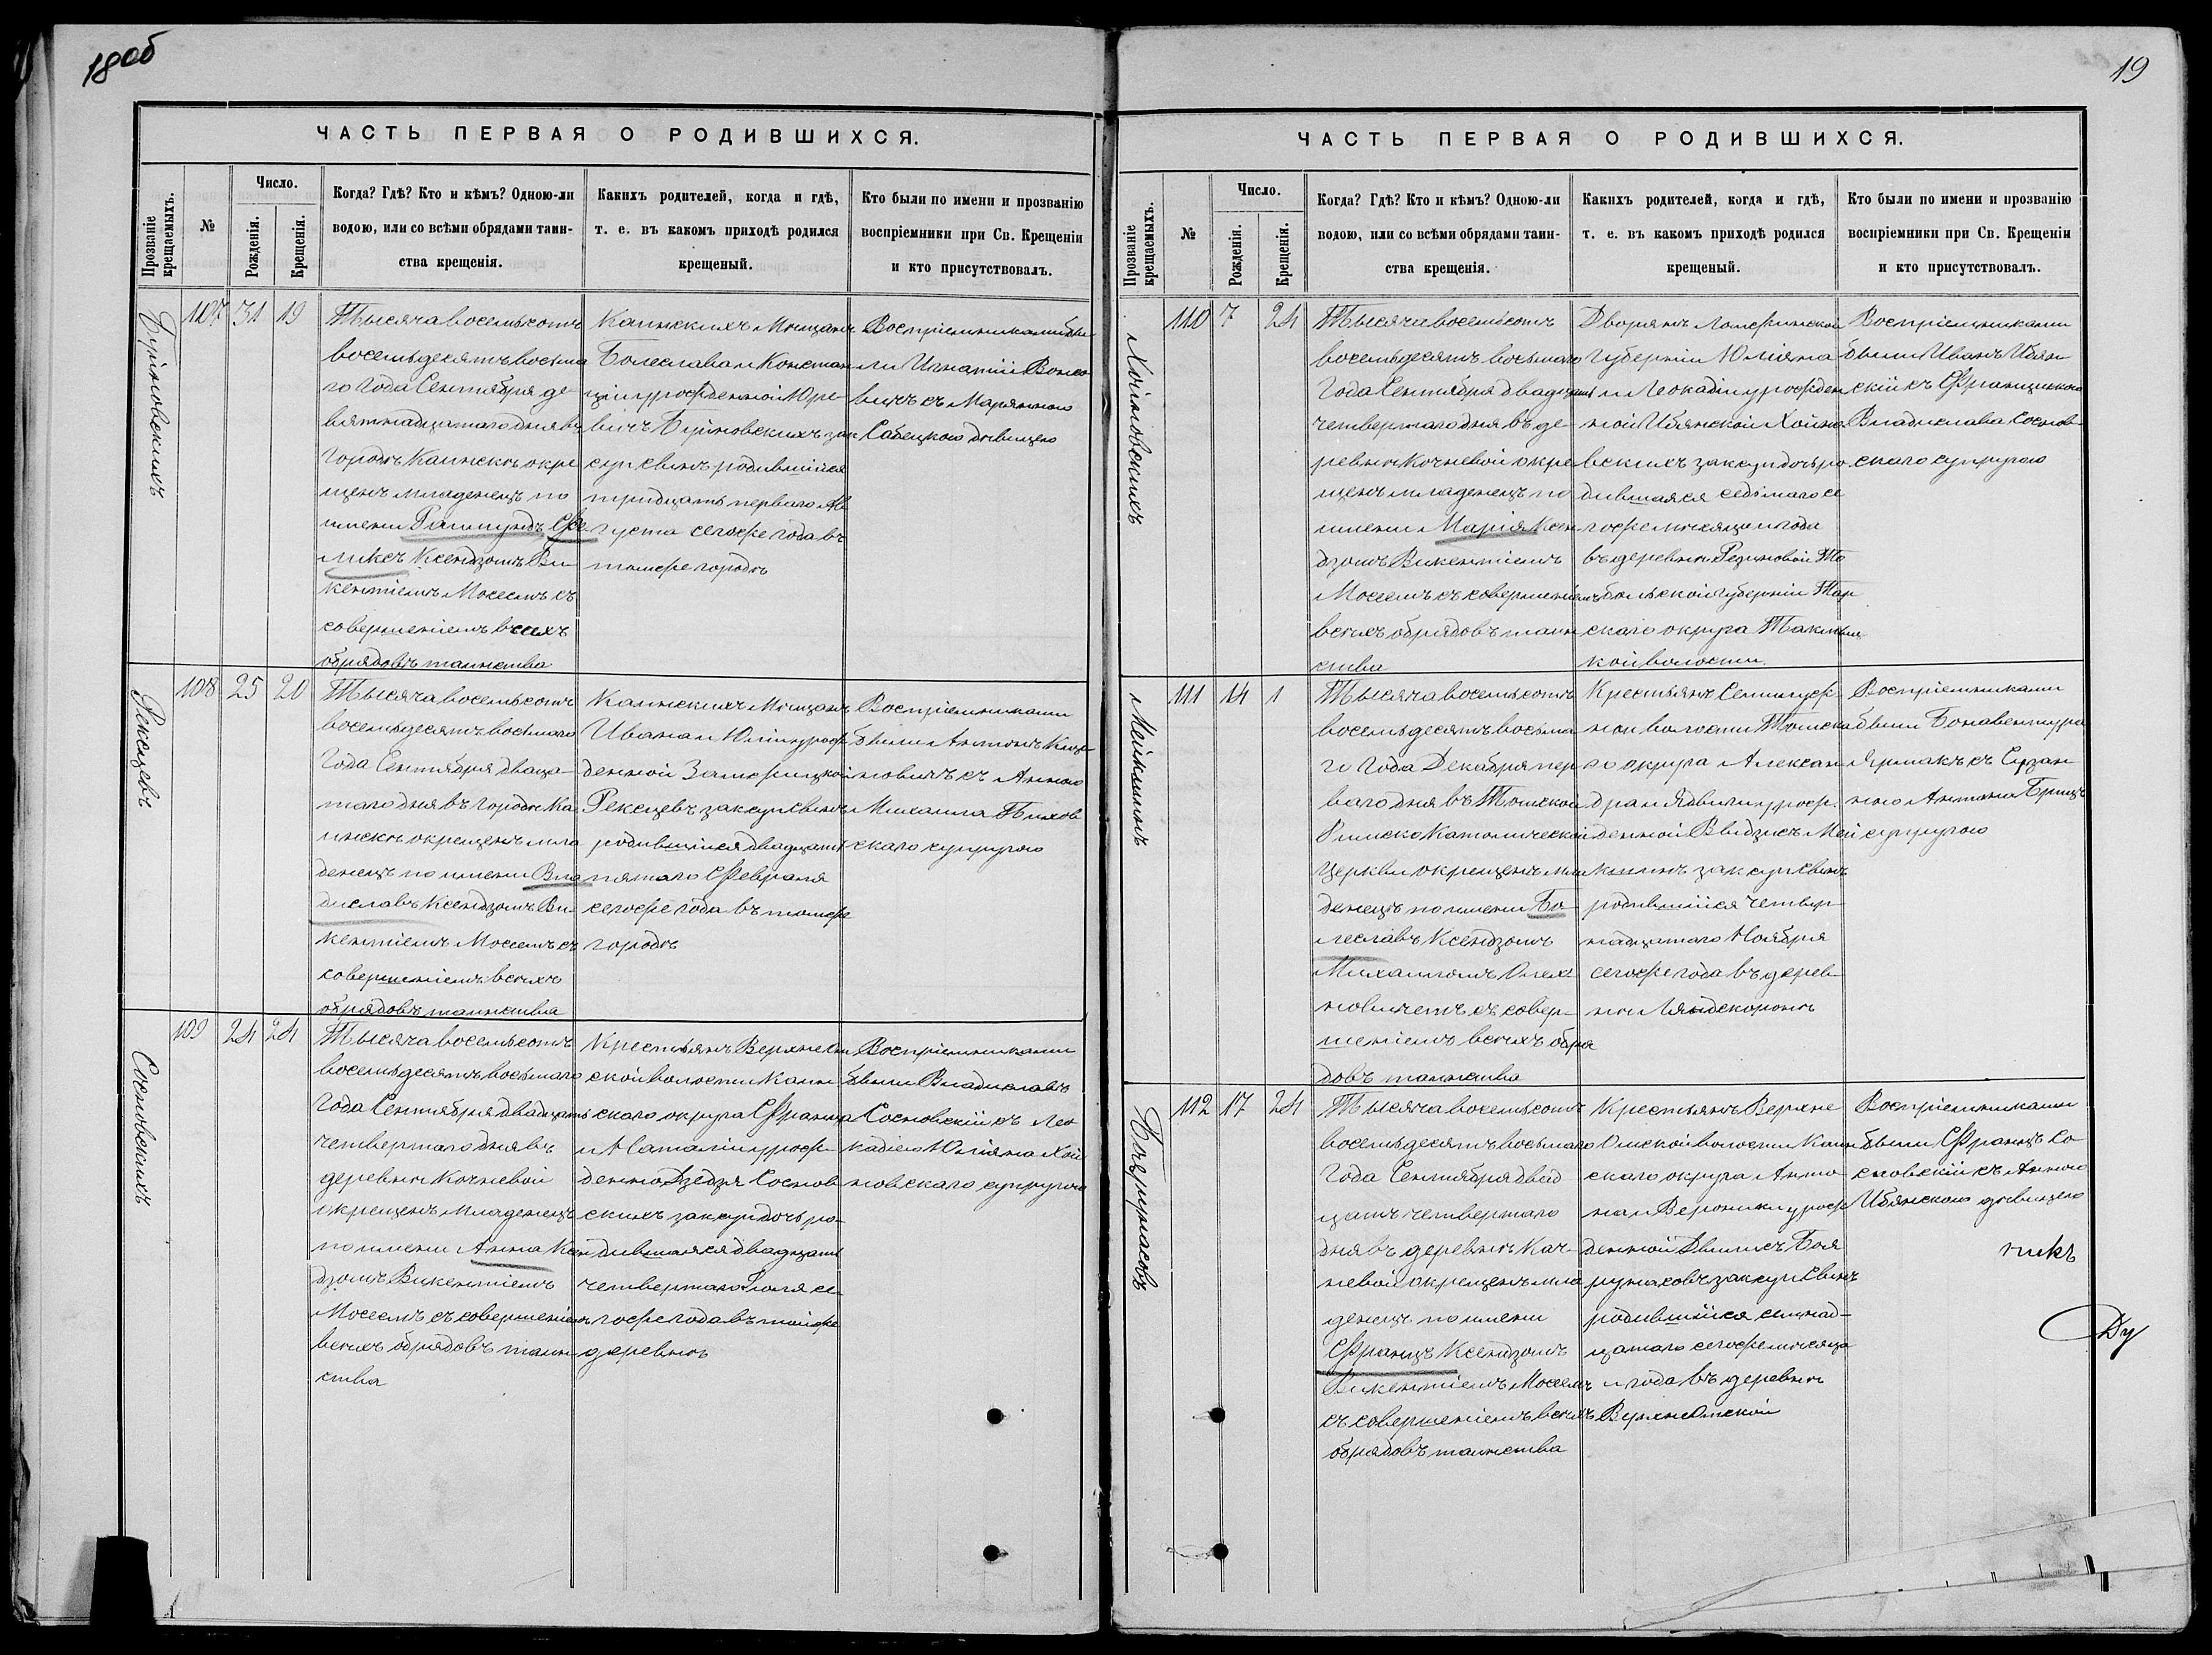 18 об
ЧАСТЬ ПЕРВАЯ О РОДИВШИХСЯ.
Прозваніе крещаемыхъ.
№
Число.
Рожденія.
Крещенія.
Когда? Гдѣ? Кто и кѣмъ? Одною-ли
водою, или со всѣми обрядами таин-
ства крещенія.
Какихъ родителей, когда и гдѣ,
т. е. въ какомъ приходѣ родился
крещеный.
Кто были по имени и прозванію
воспріемники при Св. Крещеніи
и кто присутствовалъ.
Буйновскихъ
107 31 19
Тысяча восемьсотъ
восемьдесятъ восьма
го года Сентября де
вятнадцатаго дня въ
городѣ Каинскѣ окре
щенъ младенецъ по
имени Раймундъ Фе
ликсъ Ксендзомъ Ви-
кентіемъ Мосеемъ съ
совершеніемъ всѣхъ
обрядовъ таинства
Каинскихъ мѣщанъ
Болеслава и Констан
ціи урожденной Юре-
вичъ Буйновскихъ зак
суп сынъ родившійся
тридцать перваго Ав
густа сегоже года въ
томже городѣ
Воспріемниками бы
ли Игнатій
вичъ съ Маріанною
Собецкою дѣвицею
108 25 20
Тысяча восемьсотъ
восемьдесятъ восьмаго
года Сентября двадца-
таго дня въ городѣ Ка
инскѣ окрещенъ мла
денецъ по имени Вла
диславъ Ксендзомъ Ви-
кентіемъ Мосеемъ съ
совершеніемъ всѣхъ
обрядовъ таинства
Каинскихъ мѣщанъ
Ивана и Юліи урож
денной
зак суп сынъ
родившійся двадцать
пятаго Февраля
сегоже года въ томже
городѣ
Воспріемниками
были Антонъ
новичъ съ Анною
Михаила
скаго супругою
Сосновскихъ
109 24 24
Тысяча восемьсотъ
восемьдесятъ восьмаго
года Сентября двадцать
четвертаго дня въ
деревнѣ Кочневой
окрещенъ младенецъ
по имени Анна Ксен
дзомъ Викентіемъ
Мосеемъ съ совершеніемъ
всѣхъ обрядовъ таин-
ства
Крестьянъ Верхне Ом
ской волости Каин
скаго округа Франца
и Наталіи урож-
денно Дзедзя Соснов
скихъ зак суп дочь ро-
дившаяся двадцать
четвертаго Іюля се-
гоже года въ тойже
деревнѣ
Воспріемниками
были Владиславъ
Сосновскій съ Лео
кадіею Юліяна Хой
новскаго супругою
19
ЧАСТЬ ПЕРВАЯ О РОДИВШИХСЯ.
Прозваніе крещаемыхъ.
№
Число.
Рожденія.
Крещенія.
Когда? Гдѣ? Кто и кѣмъ? Одною-ли
водою, или со всѣми обрядами таин-
ства крещенія.
Какихъ родителей, когда и гдѣ,
т. е. въ какомъ приходѣ родился
крещеный.
Кто были по имени и прозванію
воспріемники при Св. Крещеніи
и кто присутствовалъ.
Хойновскихъ
110 7 24
Тысяча восемьсотъ
восемьдесятъ восьмаго
года Сентября двадцать
четвертаго дня въ де-
ревнѣ Кочневой окре
щенъ младенецъ по
имени Марія Ксен
дзомъ Викентіемъ
Мосеемъ съ совершеніемъ
всѣхъ обрядовъ таин
ства
Дворянъ Ломжинской
губерніи Юліяна
и Леокадіи урожден
ной Ибянской Хойно
вскихъ зак суп дочь ро
дившаяся седьмаго се
гоже мѣсяца и года
въ деревнѣ Резиновой То
больской губерніи Тар
скаго округа
кой волости
Воспріемниками
были Иванъ Ибян
скій съ Францишкою
Владислава Соснов
скаго супругою
Мейкшинъ
111 14 1
Тысяча восемьсотъ
восемьдесятъ восьма
го года Декабря пер
ваго дня въ Томской
Римско Католической
церкви окрещенъ мла
денецъ по имени Бо
леславъ Ксендзомъ
Михаиломъ Олех-
новичемъ съ совер-
шеніемъ всѣхъ обря
довъ таинства
Крестьянъ Семилуж-
ной волости Томска
го округа Алексан
дра и Ядвиги урож.
денной Мей
кшинъ зак суп сынъ
родившійся четыр-
надцатаго Ноября
сегоже года въ дерев-
нѣ Ляндскоронѣ
Воспріемниками
были Бонавентура
Ярмакъ съ Сузан
ною Антона
супругою
Бояруновъ
112 17 24
Тысяча восемьсотъ
восемьдесятъ восьмаго
года Сентября двад
цать четвертаго
дня въ деревнѣ Коч-
невой окрещенъ мла
денецъ по имени
Францъ Ксендзомъ
Викентіемъ Мосеемъ
съ совершеніемъ всѣхъ
обрядовъ таинства
Крестьянъ Верхне
Омской волости Каин
скаго округа Анто
на и Вероники урож
денной
зак суп сынъ
родившійся семнад-
цатаго сегоже мѣсяца
и года въ деревнѣ
Верхне Омской
Воспріемниками
были Францъ Со
сновскій съ Анною
Ибянскою дѣвицею